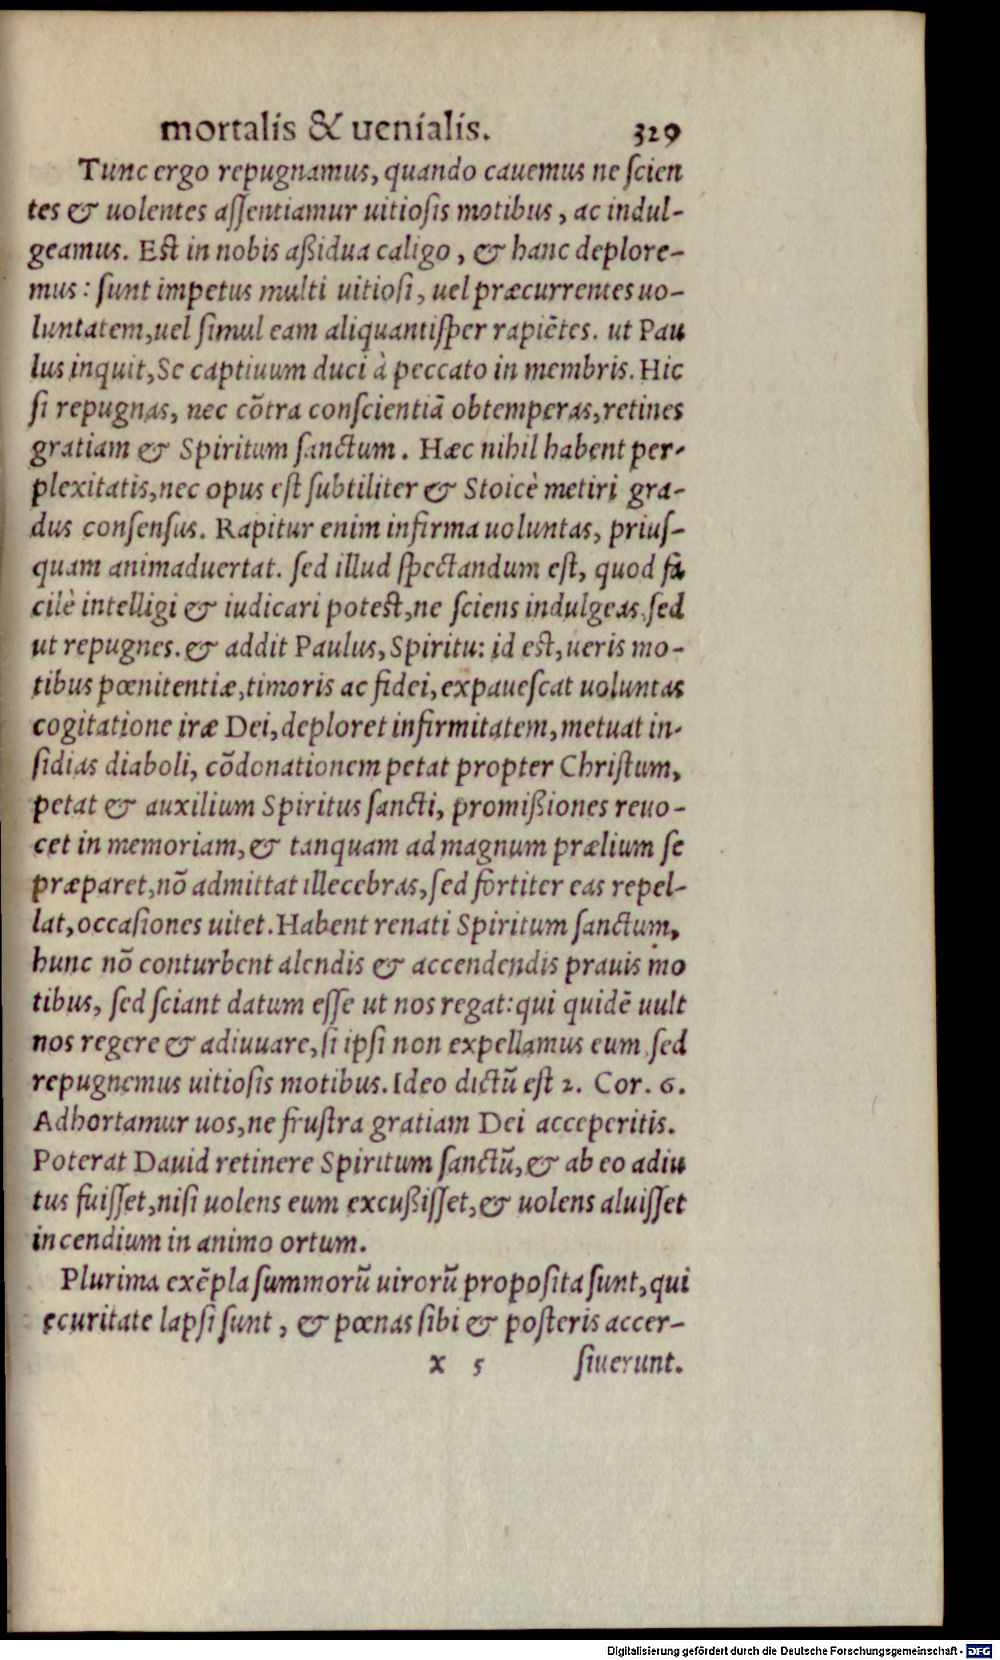 mortalis & uenialis. 329
Tunc ergo repugnamus, quando cauemus ne ſcien
tes & uolentes aſſentiamur uitioſis motibus, ac indul-
geamus. Eſt in nobis aßidua caligo, & hanc deplore-
mus: ſunt impetus multi uitioſi, uel præcurrentes uo-
luntatem, uel ſimul eam aliquantiſper rapiētes. ut Pau
lus inquit, Se captiuum duci à peccato in membris. Hic
ſi repugnas, nec cōtra conſcientiā obtemperas, retines
gratiam & Spiritum ſanctum. Hæc nihil habent per-
plexitatis, nec opus eſt ſubtiliter & Stoicè metiri gra-
dus conſenſus. Rapitur enim infirma uoluntas, priuſ-
quam animaduertat. ſed illud ſpectandum eſt, quod fa
cilè intelligi & iudicari poteſt, ne ſciens indulgeas, ſed
ut repugnes. & addit Paulus, Spiritu: id eſt, ueris mo-
tibus pœnitentiæ, timoris ac fidei, expaueſcat uoluntas
cogitatione iræ Dei, deploret infirmitatem, metuat in-
ſidias diaboli, cōdonationem petat propter Chriſtum,
petat & auxilium Spiritus ſancti, promißiones reuo-
cet in memoriam, & tanquam ad magnum prælium ſe
præparet, nō admittat illecebras, ſed fortiter eas repel-
lat, occaſiones uitet. Habent renati Spiritum ſanctum,
hunc nō conturbent alendis & accendendis prauis mo
tibus, ſed ſciant datum eſſe ut nos regat: qui quidē uult
nos regere & adiuuare, ſi ipſi non expellamus eum, ſed
repugnemus uitioſis motibus. Ideo dictū eſt 2. Cor. 6.
Adhortamur uos, ne fruſtra gratiam Dei acceperitis.
Poterat Dauid retinere Spiritum ſanctū, & ab eo adiu
tus fuiſſet, niſi uolens eum excußiſſet, & uolens aluiſſet
incendium in animo ortum.
Plurima exēpla ſummorū uirorū propoſita ſunt, qui
ecuritate lapſi ſunt, & pœnas ſibi & poſteris accer-
x 5 ſiuerunt.
Digitalisierung gefördert durch die Deutsche Forschungsgemeinschaft - DFG